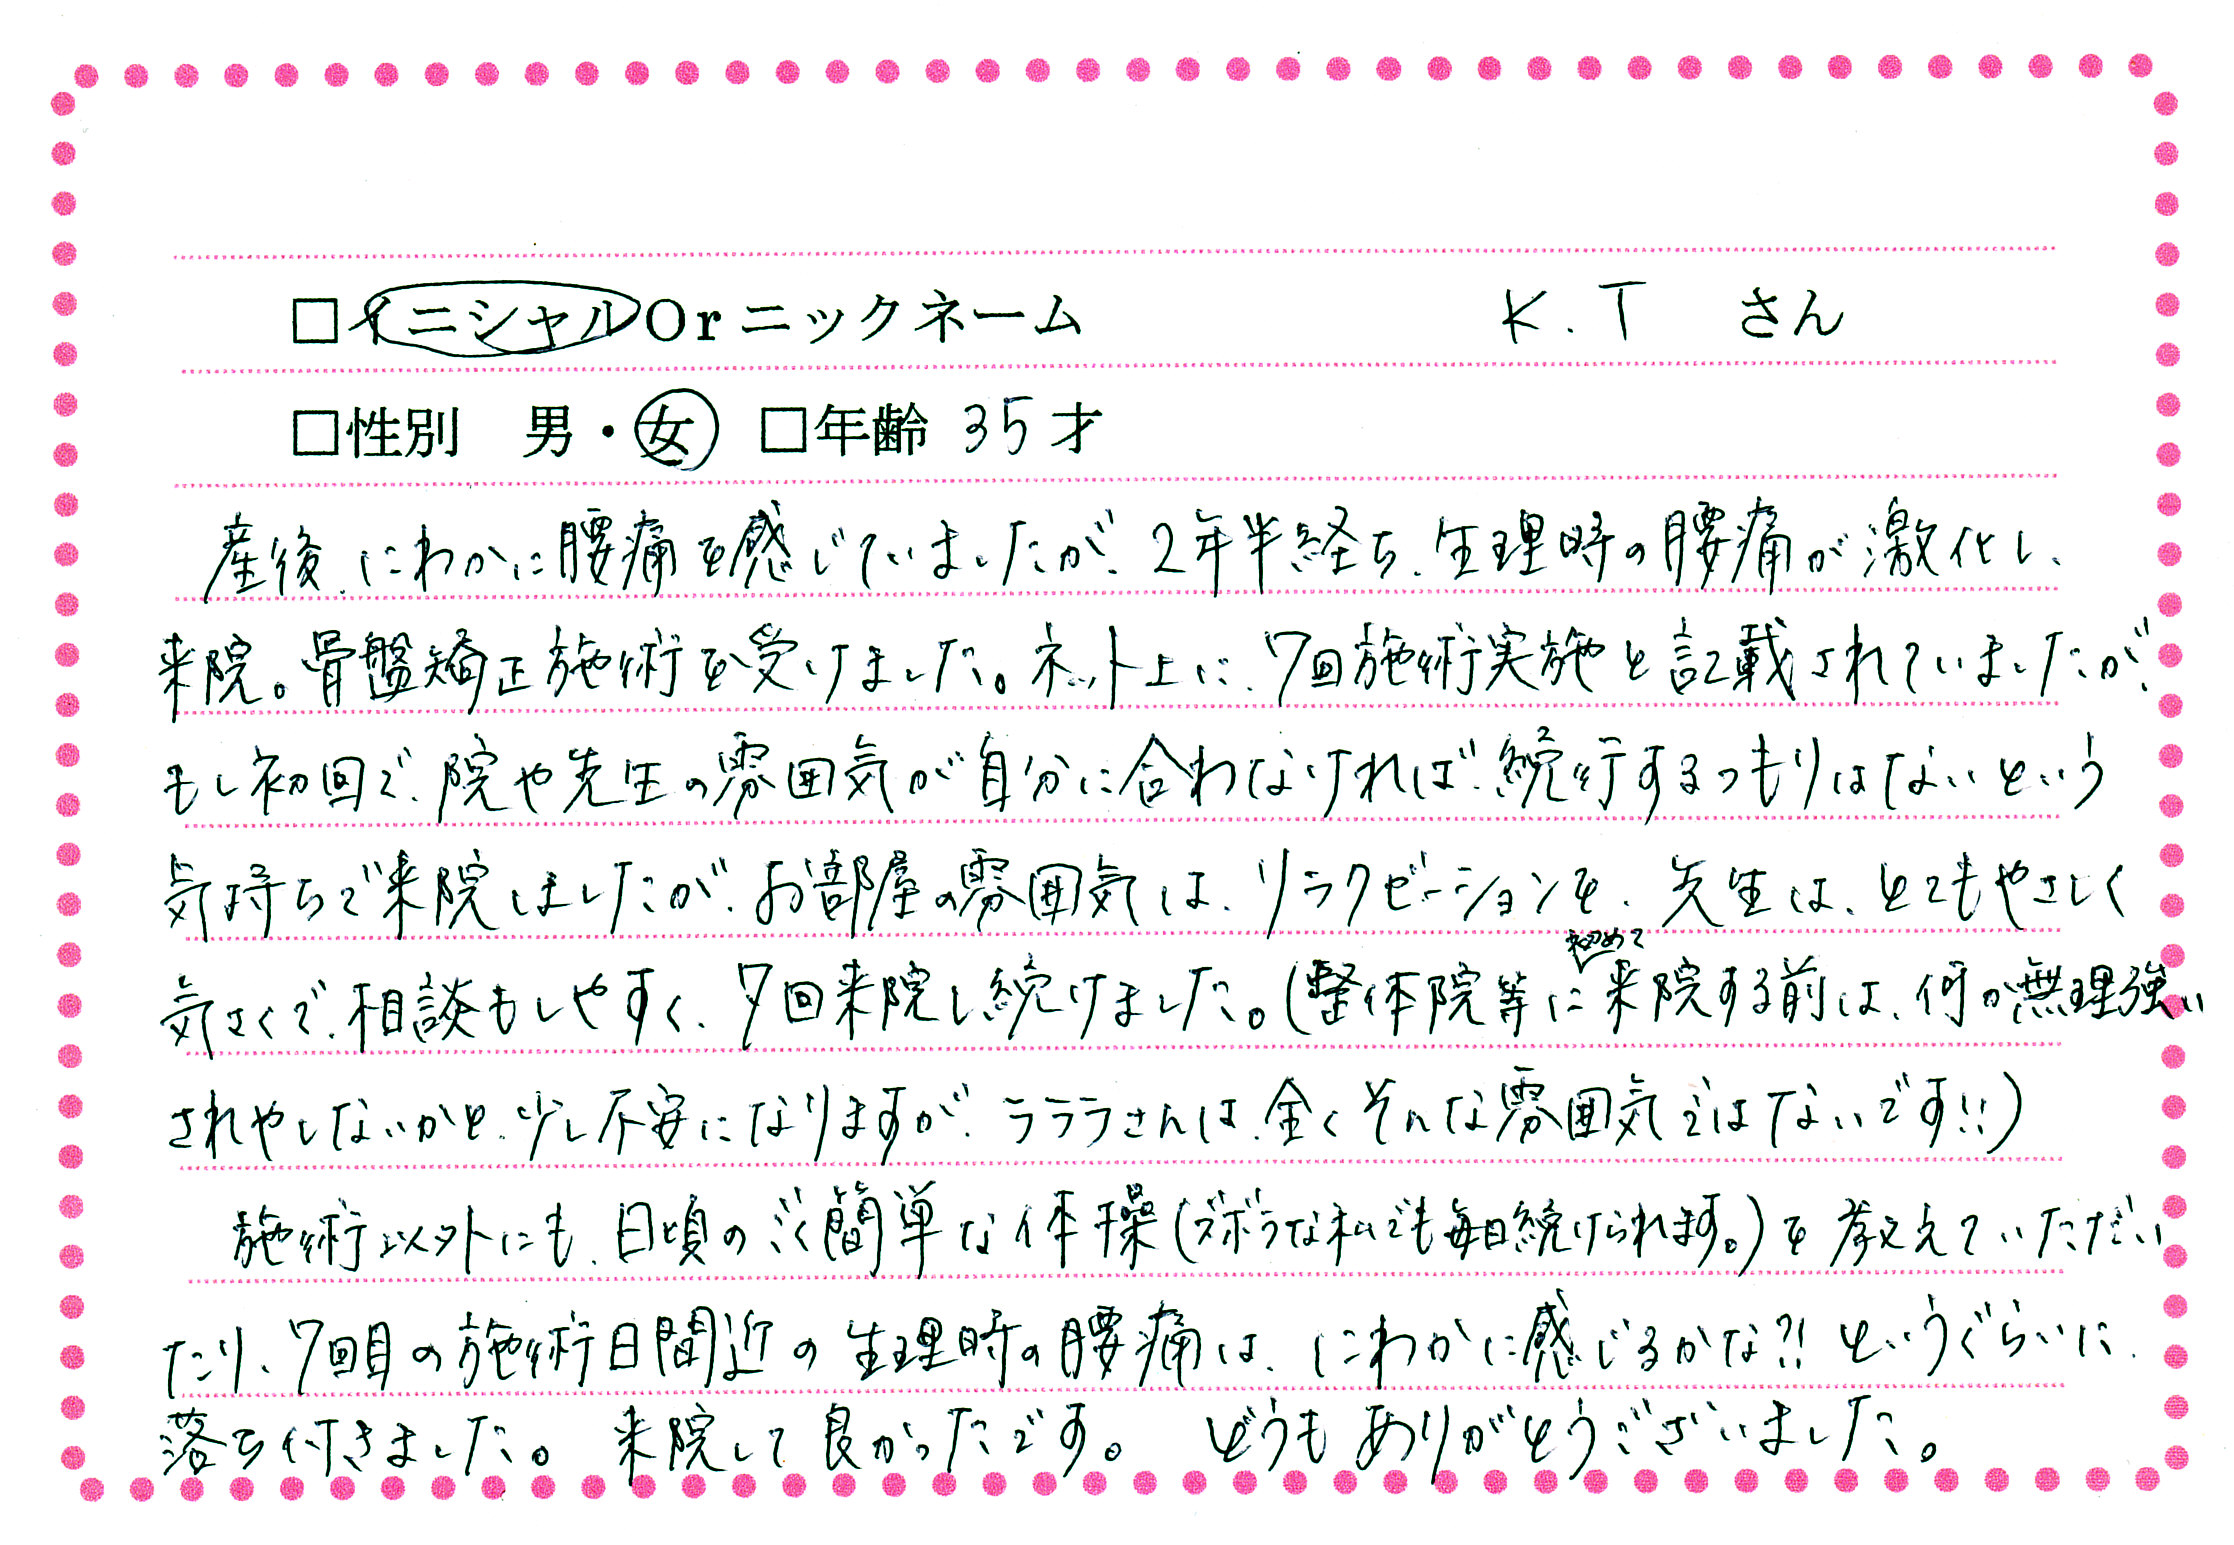 □イニシャルOrニックネーム K.T さん
□性別 男・女 □年齢 35才
産後、にわかに腰痛を感じていましたが、2年半経ち、生理時の腰痛が激化し、
来院。骨盤矯正施術を受けました。ネット上に、7回施術実施と記載されていましたが、
もし初回で、院や先生の雰囲気が自分に合わなければ、続行するつもりはないという
気持ちで来院しましたが、お部屋の雰囲気は、リラクゼーションを、先生は、とてもやさしく
気さくで、相談もしやすく、7回来院し続けました。(整体院等に初めて来院する前は、何か無理強い
されやしないかと、少し不安になりますが、ラララさんは、全くそんな雰囲気ではないです!!)
施術以外にも、日頃のごく簡単な体操(ズボラな私でも毎日続けられます。)を教えていただい
たり、7回目の施術日間近の生理時の腰痛は、にわかに感じるかな?!というぐらいに、
落ち付きました。 来院して良かったです。 どうもありがとうございました。